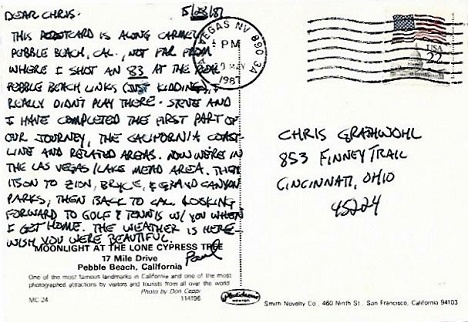 DEAR CHRIS, 5/28/87
THIS POSTCARD IS ALONG CARMEL/
PEBBLE BEACH, CAL., NOT FAR FROM
WHERE I SHOT AN 83 AT THE REAL
PEBBLE BEACH LINKS (JUST KIDDING), I
REALLY DIDN'T PLAY THERE. STEVE AND
I HAVE COMPLETED THE FIRST PART OF
OUR JOURNEY, THE CALIFORNIA COAST-
LINE AND RELATED AREAS. NOW WE'RE IN
THE LAS VEGAS/LAKE MEAD AREA. THEN
ITS ON TO ZION, BRYCE, & GRAND CANYON
PARKS, THEN BACK TO CAL. LOOKING
FORWARD TO GOLF & TENNIS W/ YOU WHEN
I GET HOME. THE WEATHER IS HERE-
WISH YOU WERE BEAUTIFUL.
Paul
MOONLIGHT AT THE LONE CYPRESS TREE
17 Mile Drive
Pebble Beach, California
One of the most famous landmarks in California and one of the most
photographed attractions by visitors and tourists from all over the world
Photo by Don Ceppi
MC 24 114196
VEGAS NV 890
PM
1987
USA
22
CHRIS GRATHWOHL
853 FINNEY TRAIL
CINCINNATI, OHIO
45224
Plastichrome
Smith Novelty Co. 460 Ninth St., San Francisco, California 94103